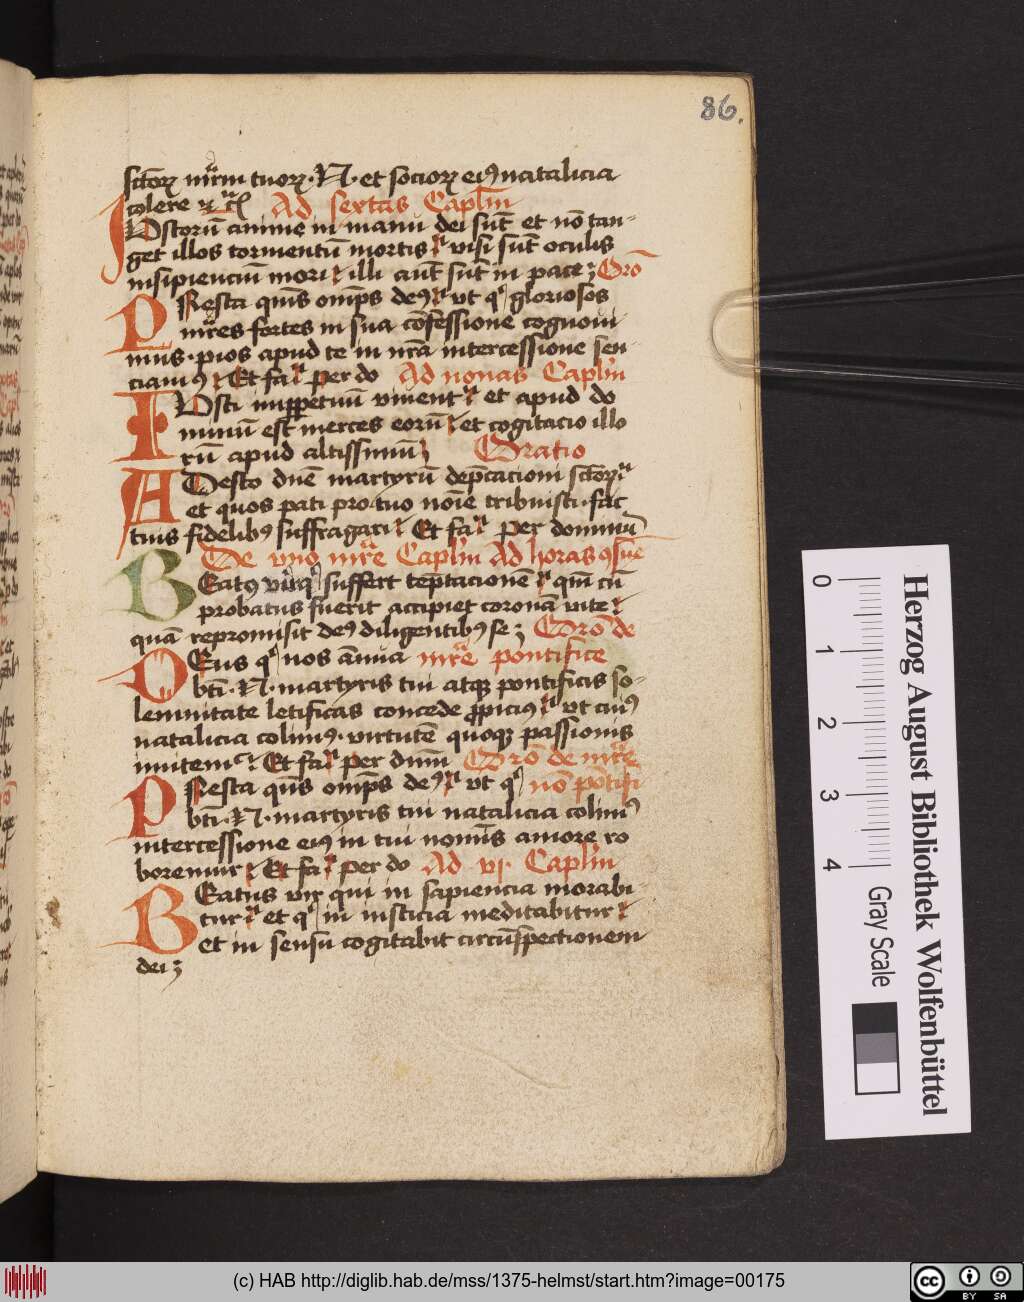 86.
sctoꝝ mr̄m tuoꝝ · N · et socioꝝ eiꝰ natalicia
colere ⁊ c̄ Ad sextas Caplm̄
IUstorū anime in manu dei sūt et nō tan-
get illos tormentū mortis visi sūt oculis
insipienciū mori illi aūt sūt in pace Orō
PResta qs̄ omp̄s deꝰ vt qͥ gloriosos
mr̄es fortes in sua cōfessione cognoui
mus · pios apud te in nrā intercessione sen-
ciamꝰ Et fa per do Ad nonas Caplm̄
IUsti inꝑpetuū viuent et apud do
minū est merces eorū et cogitacio illo
rū apud altissimū Oratio
ADesto dn̄e martyrū dep̄cacioni sctoꝝ
et quos pati pro tuo noīe tribuisti · fac
tuis fidelibꝰ suffragari Et fa per dominū
De vno mr̄e Caplm̄ Ad horas ꝯsuē
BEatꝰ vir qͥ suffert tēptacionē qm̄ cū
probatus fuerit accipiet coronā vite
quā repromisit deꝰ diligentibꝰ se Orō de
DEus qͥ nos ānua mr̄e pontifice
bti · N · martyris tui atqꝫ pontificis so-
lemnitate letificas concede ꝓpiciꝰ vt cuiꝰ
natalicia colimꝰ · virtutē quoqꝫ passionis
imitemꝰ Et fa per dnm̄ Orō de mr̄e
PResta qs̄ omp̄s deꝰ vt qͥ nō pōtifi
bti · N · martyris tui natalicia colimꝰ
intercessione eiꝰ in tui nomīs amore ro
boremur Et fa per do Ad vj. Caplm̄
BEatus vir qui in sapiencia morabi-
tur et qͥ in iusticia meditabitur
et in sensu cogitabit circūspectionem
dei
Herzog August Bibliothek Wolfenbüttel
0 1 2 3 4
Gray Scale
(c) HAB http://diglib.hab.de/mss/1375-helmst/start.htm?image=00175
cc BY SA